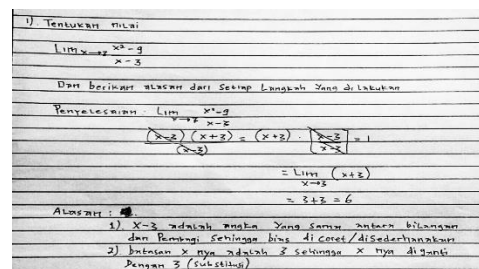 1). Tentukan nilai
Lim x→3 x² - 9
x - 3
Dan berikan alasan dari setiap Langkah yang di lakukan
Penyelesaian Lim x→3 x² - 9
x - 3
(x-3) (x+3) = (x+3) · x-3 = 1
(x-3) x-3
= Lim (x+3)
x→3
= 3+3 = 6
Alasan :
1). X-3 adalah angka yang sama antara bilangan
dan Pembagi sehingga bisa di coret/disederhanakan
2) batasan x nya adalah 3 sehingga x nya diganti
Dengan 3 (substitusi)